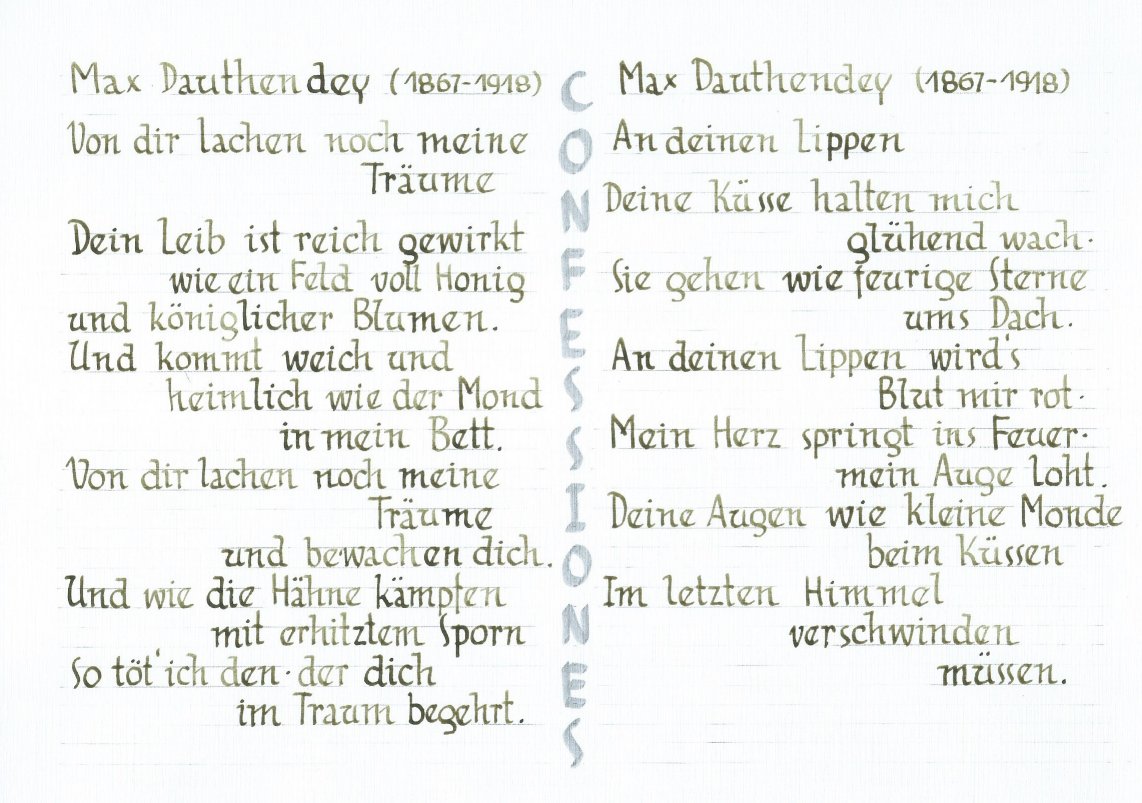 Max Dauthendey (1867-1918)
Von dir lachen noch meine
Träume
Dein Leib ist reich gewirkt
wie ein Feld voll Honig
und königlicher Blumen.
Und kommt weich und
heimlich wie der Mond
in mein Bett.
Von dir lachen noch meine
Träume
und bewachen dich.
Und wie die Hähne kämpfen
mit erhitztem Sporn
So töt' ich den · der dich
im Traum begehrt.
CONFESSIONES
Max Dauthendey (1867-1918)
An deinen Lippen
Deine Küsse halten mich
glühend wach ·
Sie gehen wie feurige Sterne
ums Dach.
An deinen Lippen wird's
Blut mir rot ·
Mein Herz springt ins Feuer ·
mein Auge loht.
Deine Augen wie kleine Monde
beim Küssen
Im letzten Himmel
verschwinden
müssen.